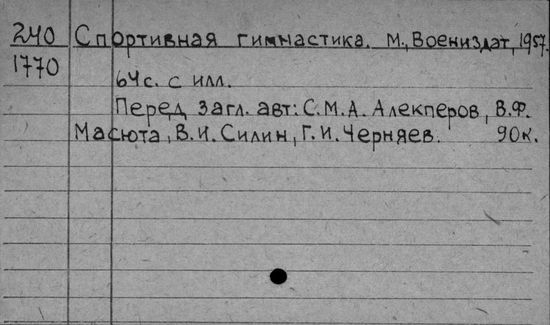 240 Спортивная гимнастика. М., Воениздат, 1957.
1770
64с. с илл.
Перед загл. авт: С.М.А. Алекперов, В.Ф.
Масюта, В.И. Силин, Г.И. Черняев. 90к.